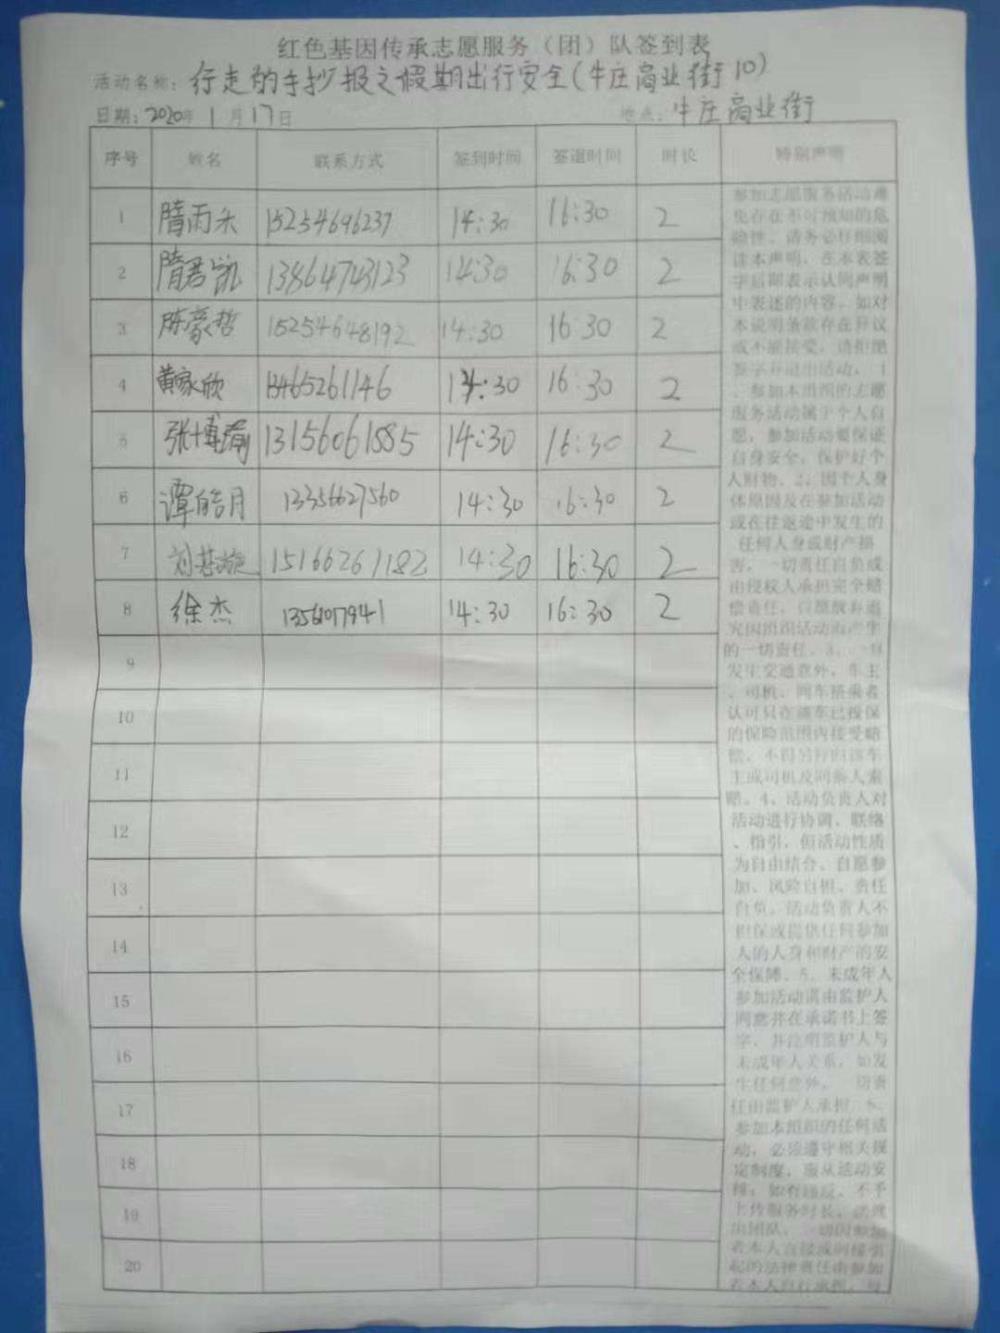 红色基因传承志愿服务（团）队签到表
活动名称：行走的手抄报之假期出行安全(牛庄商业街10)
日期：2020年1月17日 地点：牛庄商业街
序号 姓名 联系方式 签到时间 签退时间 时长 特别声明
1 隋雨禾 15254696237 14:30 16:30 2
2 隋君凯 13864743123 14:30 16:30 2
3 陈豪哲 15254648192 14:30 16:30 2
4 黄家欣 13465261146 14:30 16:30 2
5 张博瀚 13156061885 14:30 16:30 2
6 谭皓月 13356627560 14:30 16:30 2
7 刘基璇 15166261182 14:30 16:30 2
8 徐杰 13561017941 14:30 16:30 2
9
10
11
12
13
14
15
16
17
18
19
20
参加志愿服务活动难
免存在不可预知的危
险性，请务必仔细阅
读本声明，在本表签
字后即表示认同声明
中表述的内容。如对
本说明条款存在异议
或不能接受，请拒绝
签字并退出活动。1
、参加本组织的志愿
服务活动属于个人自
愿，参加活动要保证
自身安全，保护好个
人财物。2、因个人身
体原因及在参加活动
或在往返途中发生的
任何人身或财产损
害，一切责任自负或
由侵权人承担完全赔
偿责任，自愿放弃追
究因组织活动而产生
的一切责任。3、一旦
发生交通意外，车主
、司机、同车搭乘者
认可只在该车已投保
的保险范围内接受赔
偿，不得另行向该车
主或司机及同乘人索
赔。4、活动负责人对
活动进行协调、联络
、指引，但活动性质
为自由结合、自愿参
加、风险自担、责任
自负。活动负责人不
担保或提供任何参加
人的人身和财产的安
全保障。5、未成年人
参加活动须由监护人
同意并在承诺书上签
字，并注明监护人与
未成年人关系，如发
生任何意外，一切责
任由监护人承担。6、
参加本组织的任何活
动，必须遵守相关规
定制度，服从活动安
排；如有违反，不予
上传服务时长，
出团队，一切因参加
者本人直接或间接引
起的法律责任由参加
者本人自行承担，与